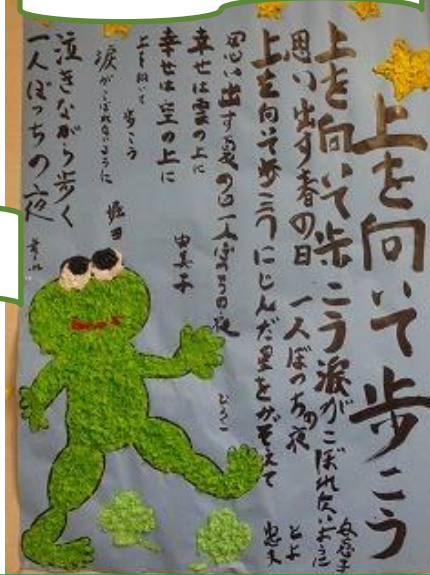 上を向いて歩こう
上を向いて歩こう涙がこぼれないように
思い出す春の日 一人ぼっちの夜 とよ
上を向いて歩こうにじんだ星をかぞえて 忠夫
思い出す夏の日一人ぼっちの夜
幸せは雲の上に 由美子
幸せは空の上に
上を向いて歩こう
涙がこぼれないように 堀田
泣きながら歩く
一人ぼっちの夜